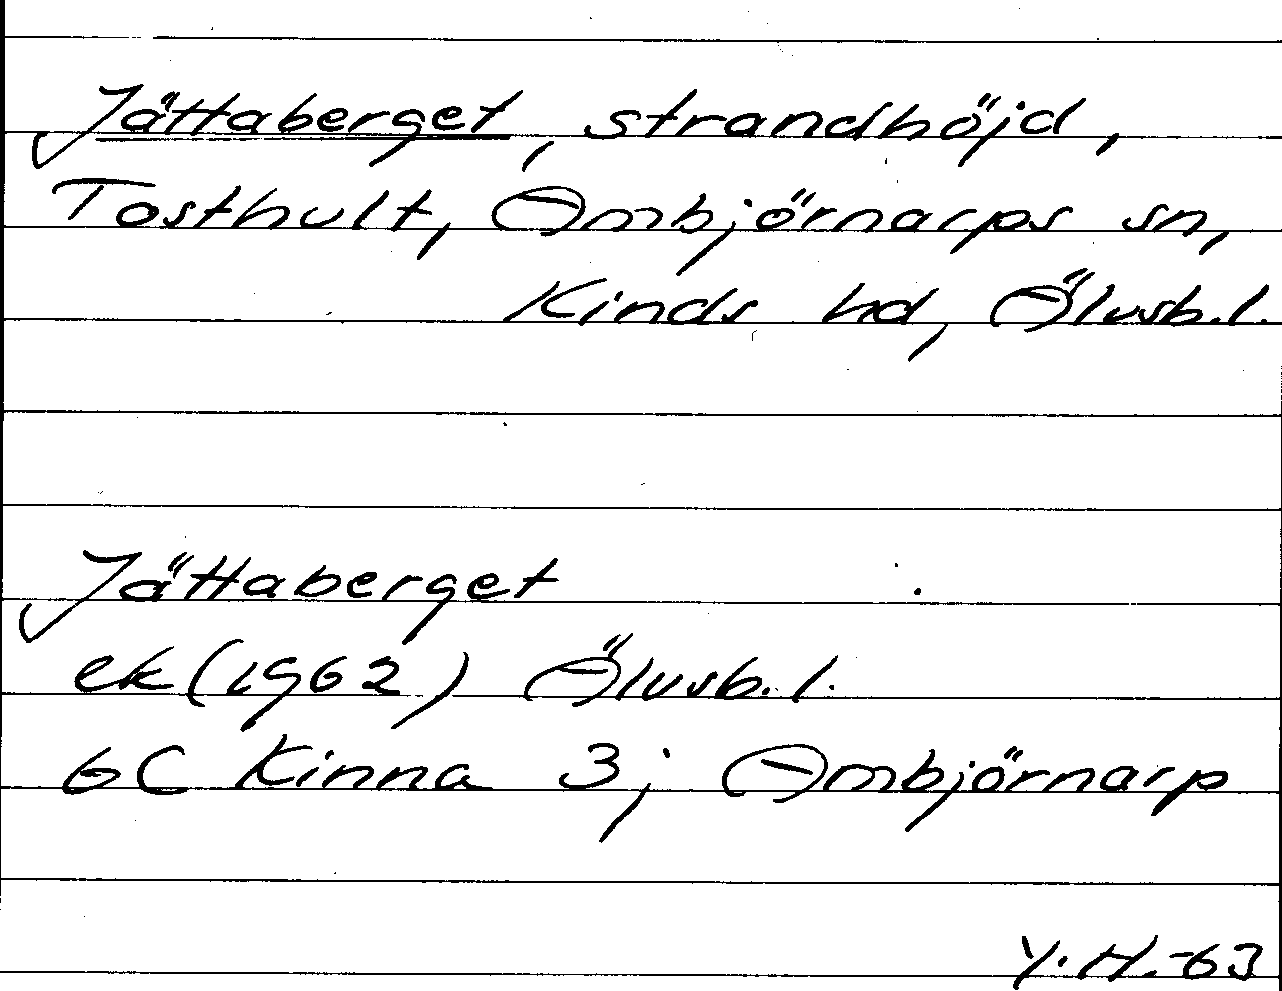 Jättaberget, strandhöjd,
Tosthult, Ambjörnarps sn,
Kinds hd, Älvsb.l.
Jättaberget
ek (1962) Älvsb.l.
6C Kinna 3j Ambjörnarp
Y.H.-63